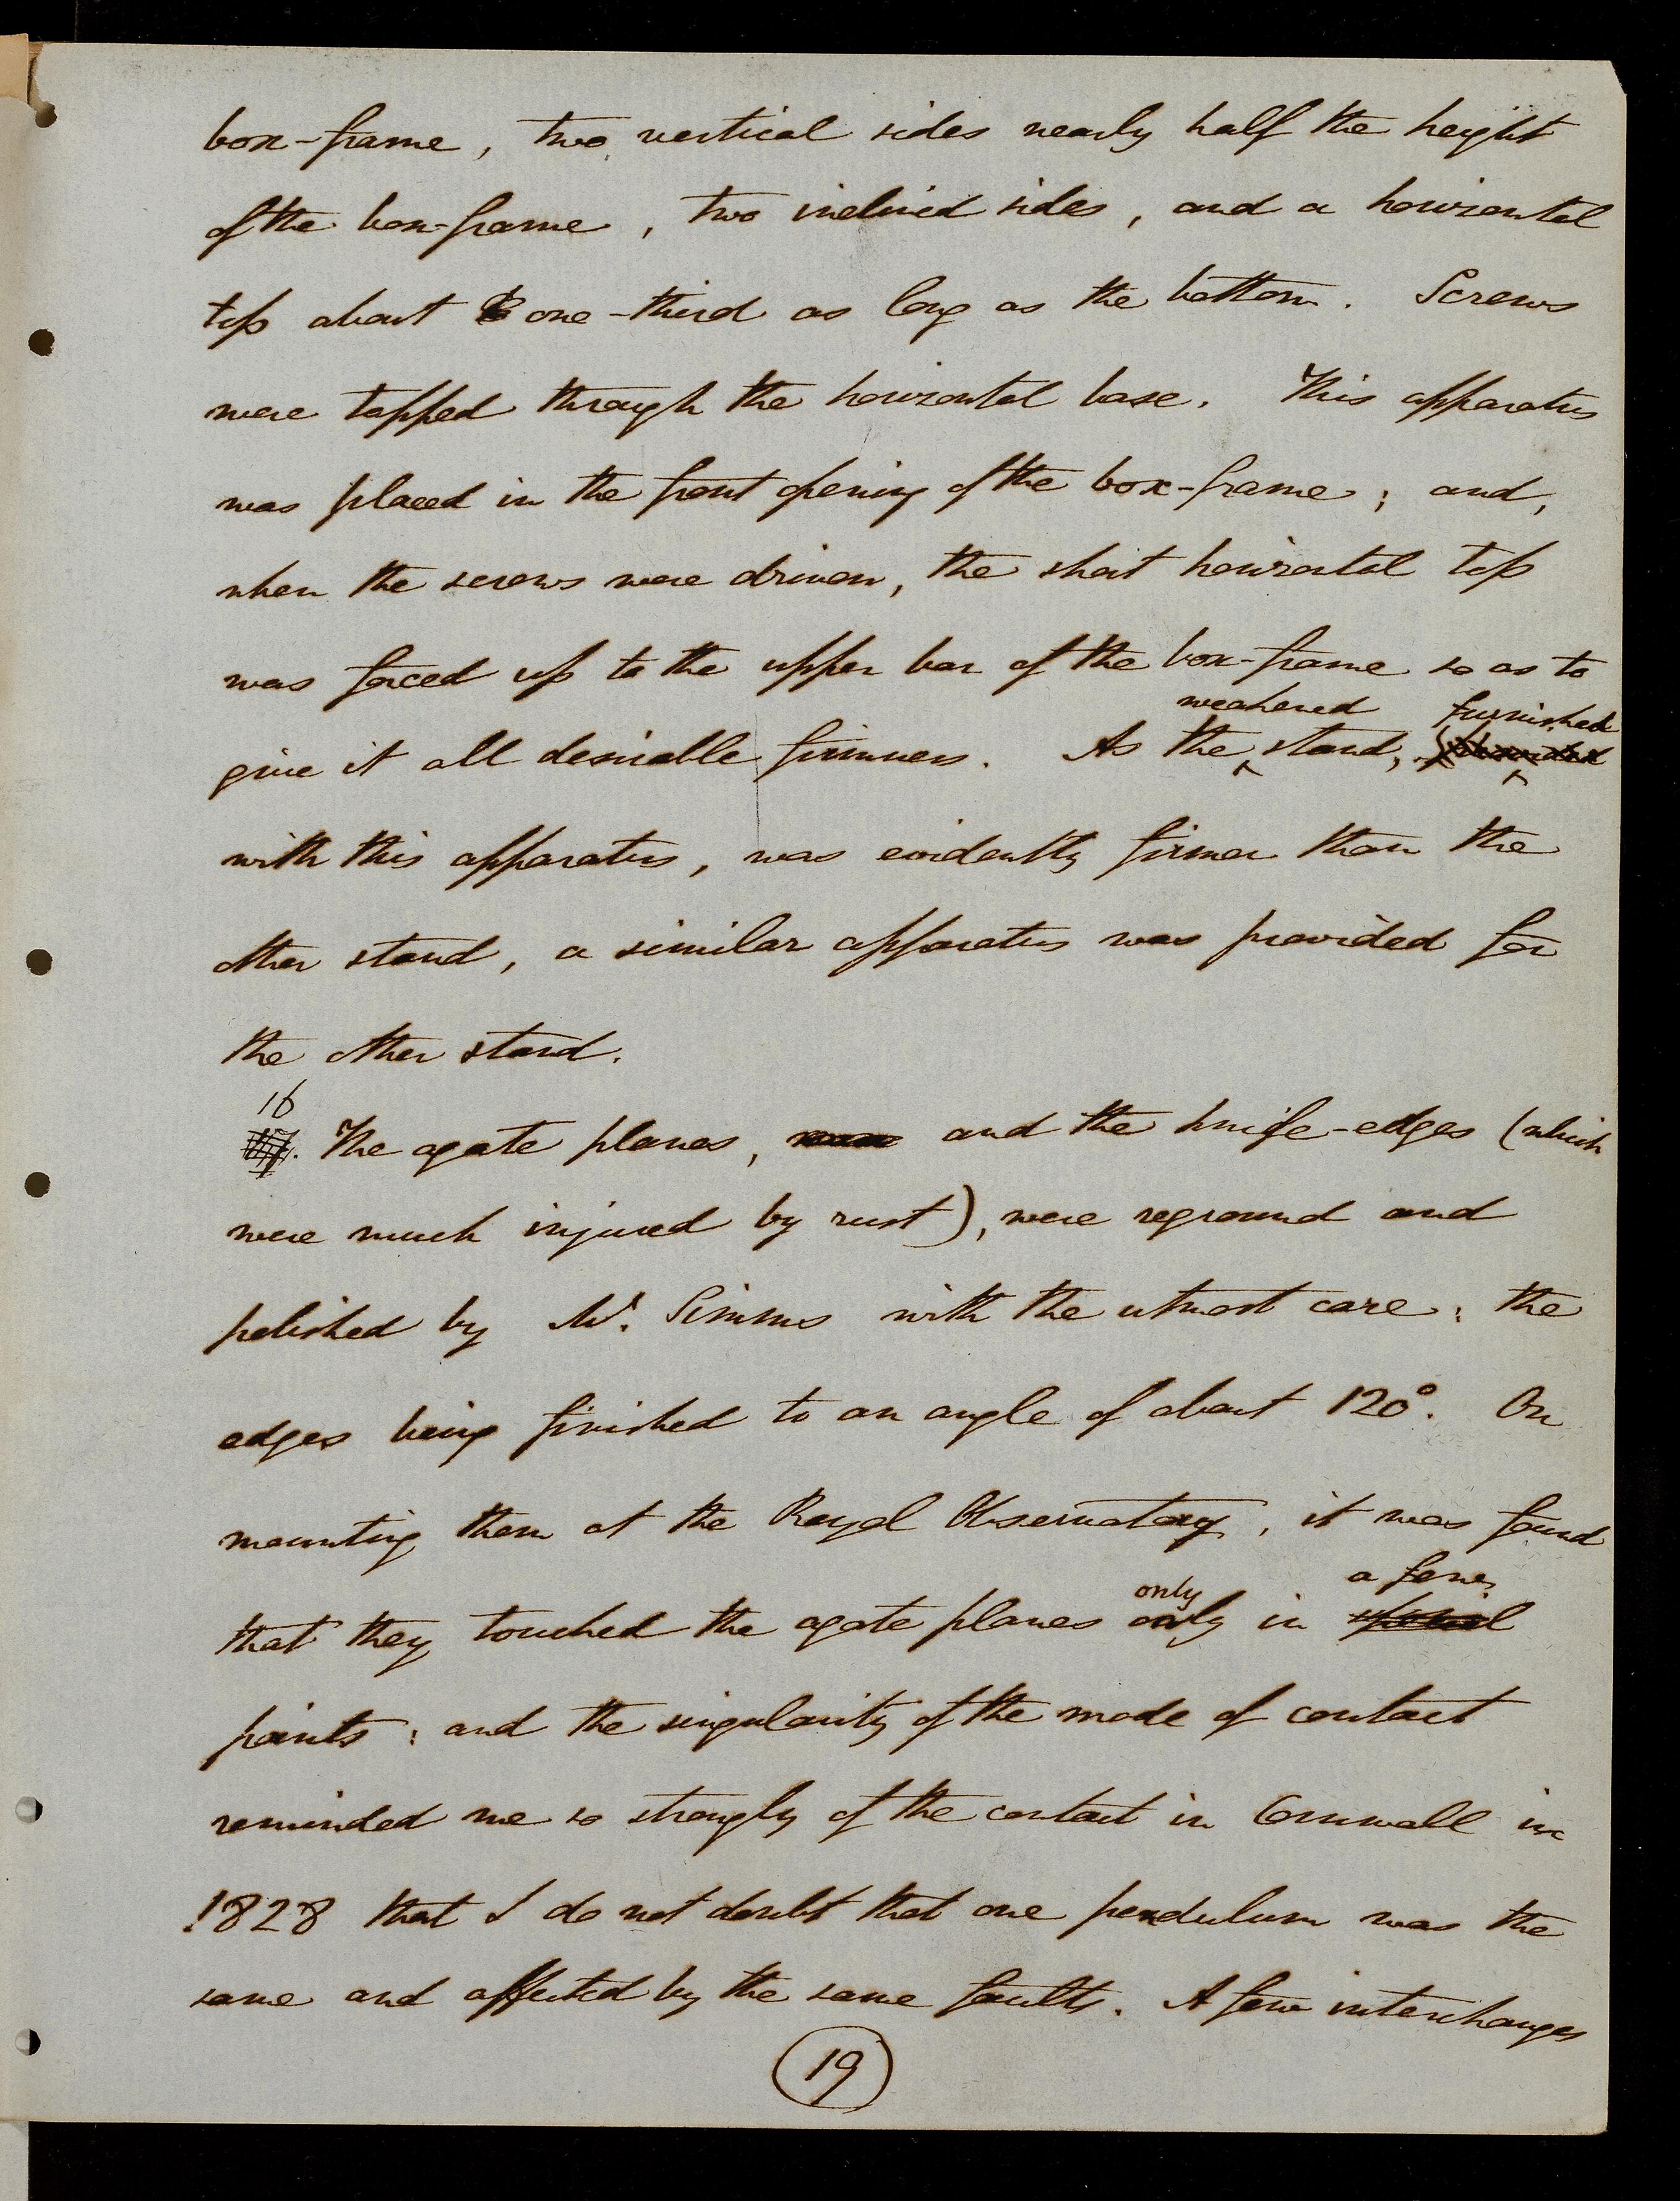 box-frame, two vertical sides nearly half the height
of the box-frame, two inclined sides, and a horizontal
top about one-third as long as the bottom. Screws
were tapped through the horizontal base. This apparatus
was placed in the front opening of the box-frame; and,
when the screws were driven, the short horizontal top
was forced up to the upper bar of the box-frame so as to
weakened furnished
give it all desirable firmness. As the stand,
with this apparatus, was evidently firmer than the
other stand, a similar apparatus was provided for
the other stand.
16
The agate planes, and the knife-edges (which
were much injured by rust), were reground and
polished by Mr. Simms with the utmost care: the
edges being finished to an angle of about 120°. On
mounting them at the Royal Observatory, it was found
only a few
that they touched the agate planes only in
points: and the singularity of the mode of contact
reminded me so strongly of the contact in Cornwall in
1828 that I do not doubt that one pendulum was the
same and affected by the same faults. A few interchanges
19